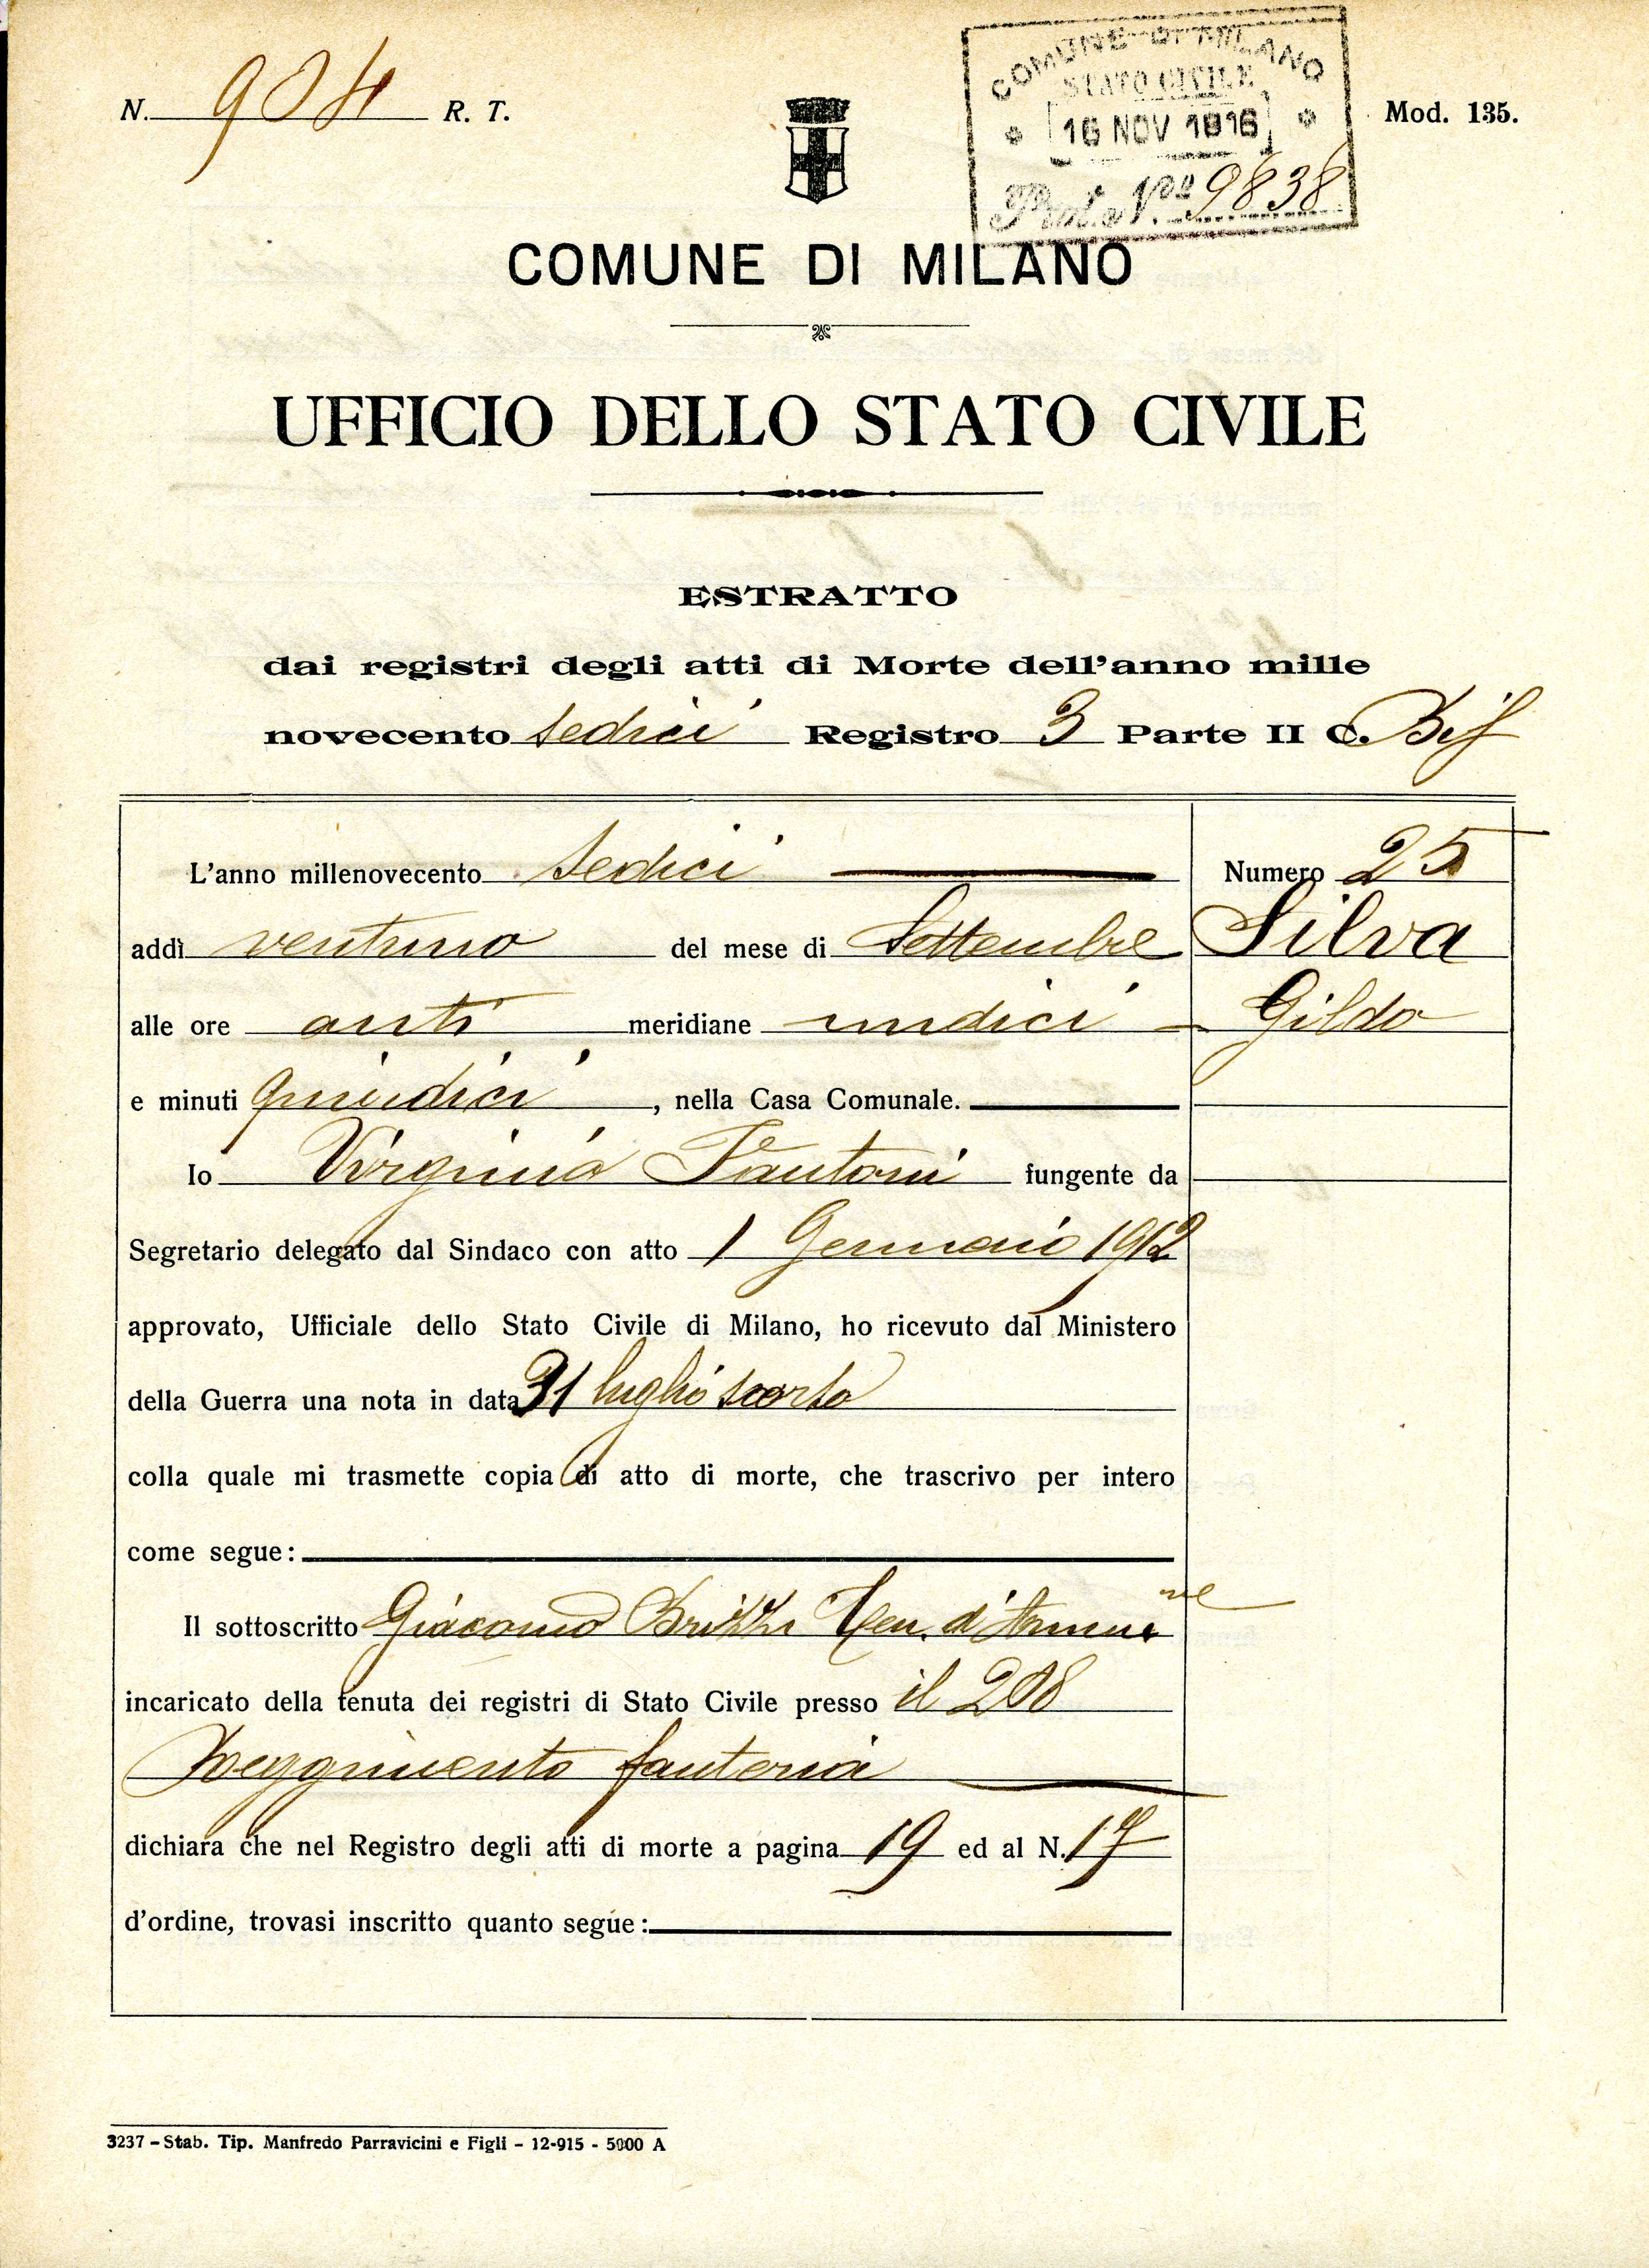 N. 904 R. T.
COMUNE DI MILANO
STATO CIVILE
16 NOV 1916
Prot. N.º 9838
Mod. 135.
COMUNE DI MILANO
UFFICIO DELLO STATO CIVILE
ESTRATTO
dai registri degli atti di Morte dell'anno mille
novecento sedici Registro 3 Parte II C. Bis
L'anno millenovecento sedici
Numero 25
addì ventuno del mese di Settembre
Silva
alle ore anti meridiane undici
Gildo
e minuti quindici, nella Casa Comunale.
Io Virginio Fantoni fungente da
Segretario delegato dal Sindaco con atto 1 Gennaio 1912
approvato, Ufficiale dello Stato Civile di Milano, ho ricevuto dal Ministero
della Guerra una nota in data 31 luglio scorso
colla quale mi trasmette copia di atto di morte, che trascrivo per intero
come segue:
Il sottoscritto Giacomo Brizzi Ten. d'Amm.ne
incaricato della tenuta dei registri di Stato Civile presso il 208
Reggimento fanteria
dichiara che nel Registro degli atti di morte a pagina 19 ed al N. 17
d'ordine, trovasi inscritto quanto segue:
3237 – Stab. Tip. Manfredo Parravicini e Figli – 12-915 - 5000 A